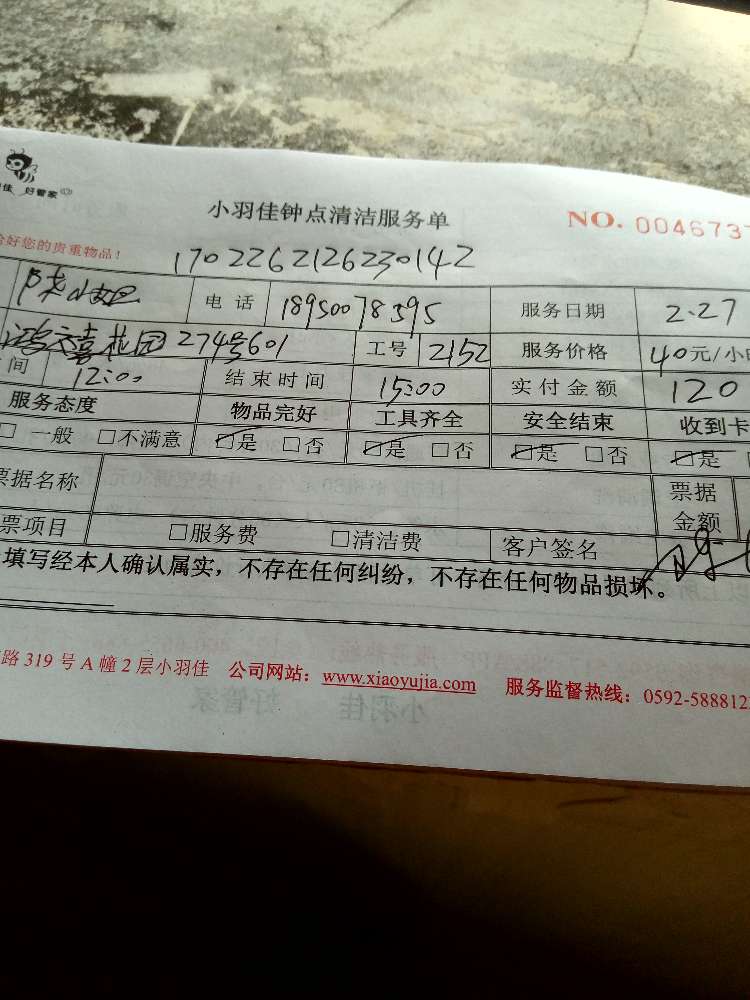 佳 好管家
小羽佳钟点清洁服务单 NO. 0046737
好您的贵重物品!
1702262126230142
电话 18950078395 服务日期 2.27
花园274号601 工号 2152 服务价格 40元/小
间 12:00 结束时间 15:00 实付金额 120
服务态度 物品完好 工具齐全 安全结束 收到卡
□一般 □不满意 ☑是 □否 ☑是 □否 ☑是 □否 ☑是
票据名称 票据金额
票项目 □服务费 □清洁费 客户签名
填写经本人确认属实,不存在任何纠纷,不存在任何物品损坏。
路319号A幢2层小羽佳 公司网站:www.xiaoyujia.com 服务监督热线:0592-588812